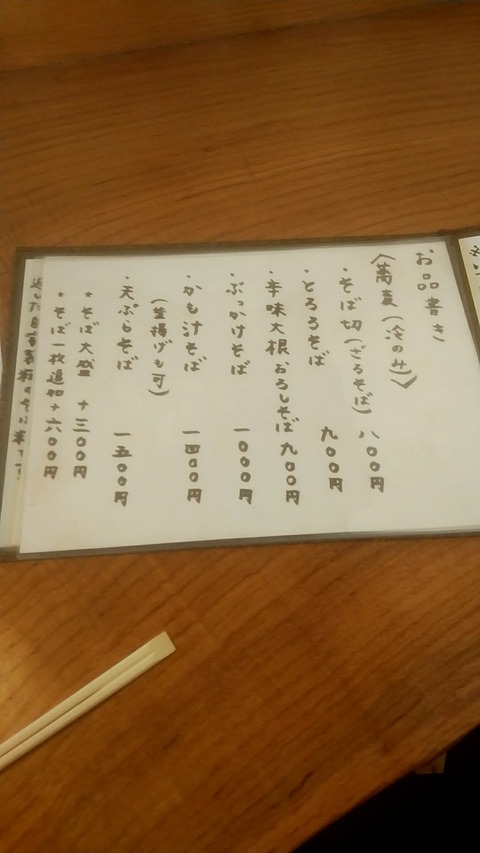 お品書き
〈蕎麦（冷のみ）〉
・そば切（ざるそば） 八〇〇円
・とろろそば 九〇〇円
・辛味大根おろしそば 九〇〇円
・ぶっかけそば 一〇〇〇円
・かも汁そば 一四〇〇円
（釜揚げも可）
・天ぷらそば 一五〇〇円
＊そば大盛 ＋三〇〇円
＊そば一枚追加＋六〇〇円